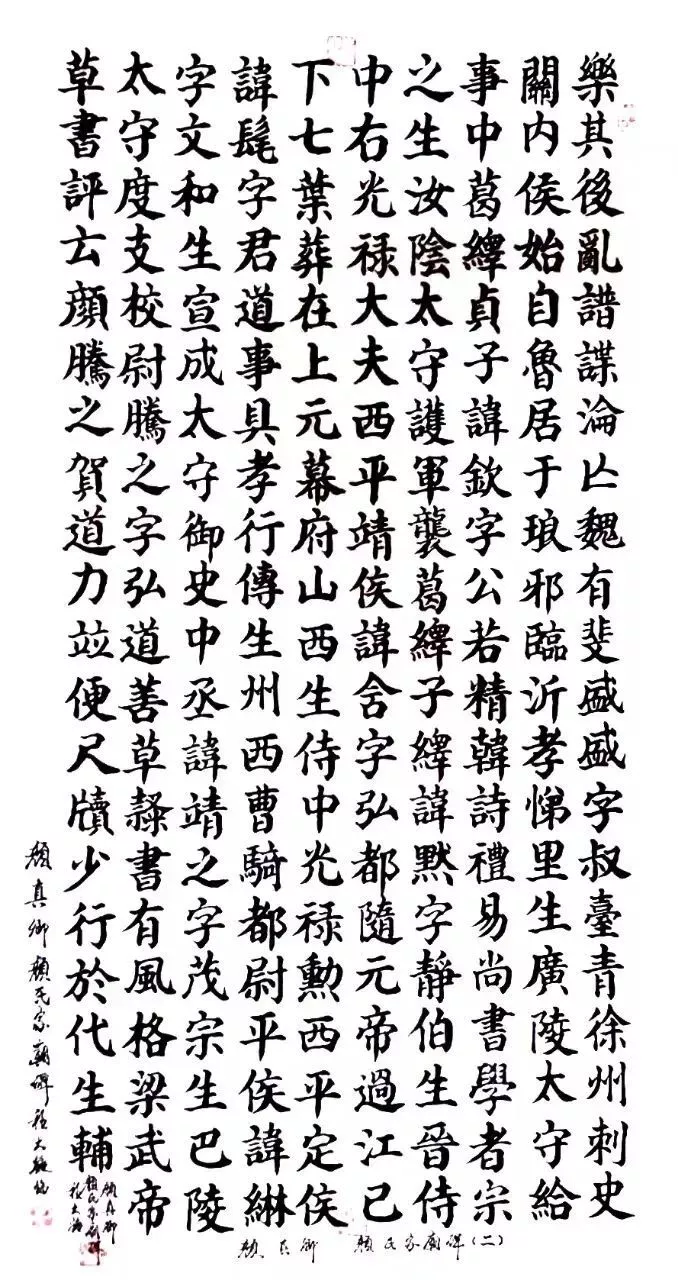 樂其後亂譜諜淪亾魏有斐盛盛字叔臺青徐州刺史
關內侯始自魯居于琅邪臨沂孝悌里生廣陵太守給
事中葛繹貞子諱欽字公若精韓詩禮易尚書學者宗
之生汝陰太守護軍襲葛繹子繹諱默字靜伯生晉侍
中右光祿大夫西平靖侯諱含字弘都隨元帝過江已
下七葉葬在上元幕府山西生侍中光祿勳西平定侯
諱髦字君道事具孝行傳生州西曹騎都尉平侯諱綝
字文和生宣成太守御史中丞諱靖之字茂宗生巴陵
太守度支校尉騰之字弘道善草隸書有風格梁武帝
草書評云顏騰之賀道力竝便尺牘少行於代生輔
顏真卿顏氏家廟碑
顏真卿
顏氏家廟碑
顏真卿 顏氏家廟碑(二)